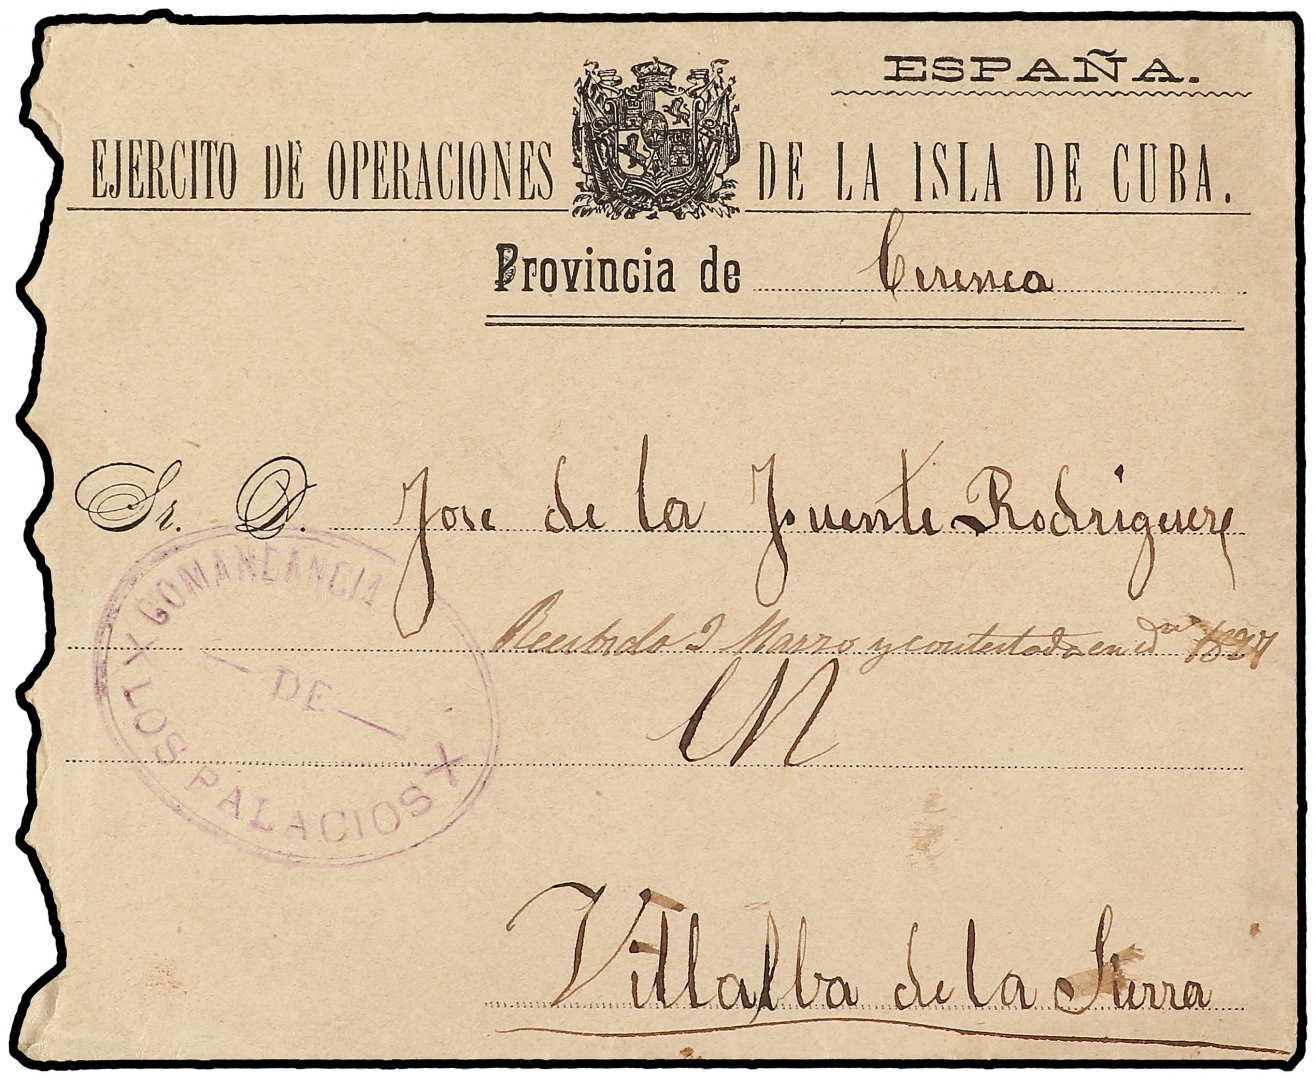 ESPAÑA.
EJERCITO DE OPERACIONES DE LA ISLA DE CUBA.
Provincia de Cuenca
Sr. D. Jose de la Fuente Rodriguez
COMANDANCIA
Recibido 2 Marzo y contestada en d
DE
LOS PALACIOS
Villalba de la Sierra